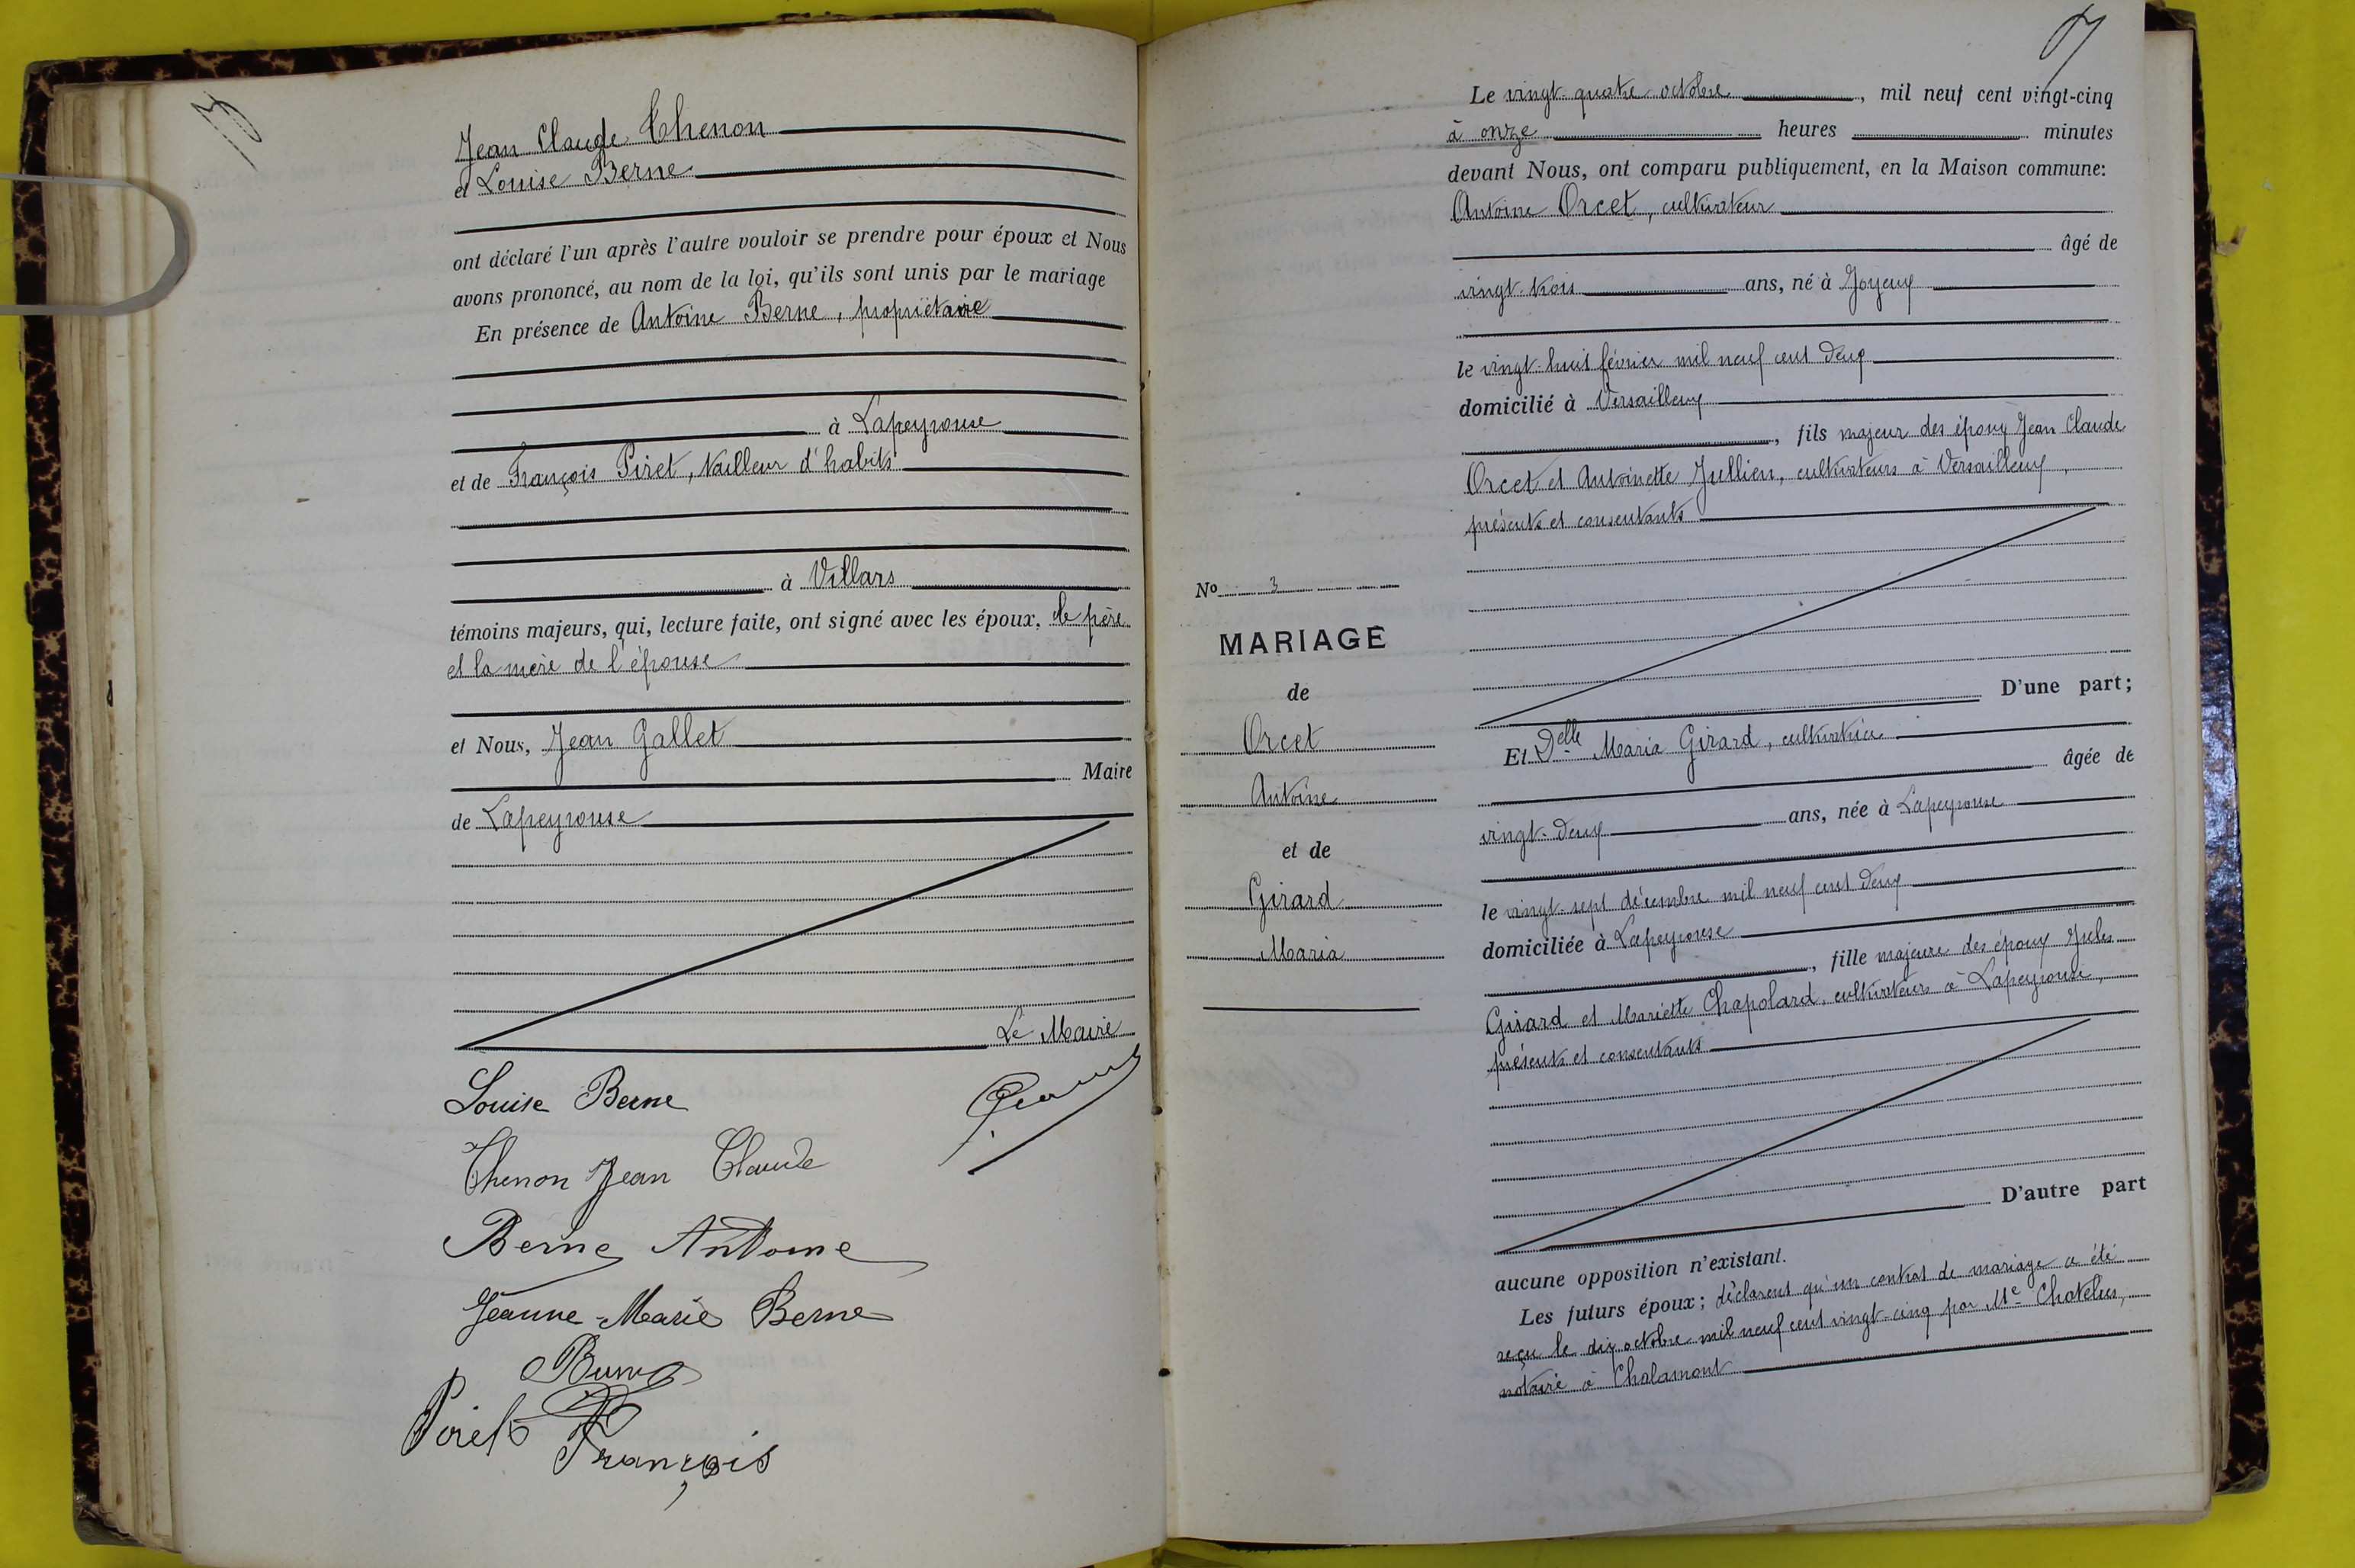 Jean Claude Thenon
et Louise Berne
ont déclaré l'un après l'autre vouloir se prendre pour époux et Nous
avons prononcé, au nom de la loi, qu'ils sont unis par le mariage
En présence de Antoine Berne, propriétaire
à Lapeyrouse
et de François Piret, tailleur d'habits
à Villars
témoins majeurs, qui, lecture faite, ont signé avec les époux, le père
et la mère de l'épouse
et Nous, Jean Gallet
Maire
de Lapeyrouse
Le Maire
Louise Berne
Thenon Jean Claude
Berne Antoine
Jeanne-Marie Berne
François
Le vingt-quatre octobre, mil neuf cent vingt-cinq
à onze heures minutes
devant Nous, ont comparu publiquement, en la Maison commune:
Antoine Orcet, cultivateur
âgé de
vingt-trois ans, né à Joyeux
le vingt-huit février mil neuf cent deux
domicilié à Versailleux
, fils majeur des époux Jean Claude
Orcet et Antoinette Jullien, cultivateurs à Versailleux,
présents et consentants
D'une part;
No 3
MARIAGE
de
Orcet
Antoine
et de
Girard
Maria
Et Delle Maria Girard, cultivatrice
âgée de
vingt-deux ans, née à Lapeyrouse
le vingt-sept décembre mil neuf cent deux
domiciliée à Lapeyrouse
, fille majeure des époux Jules
Girard et Mariette Chapolard, cultivateurs à Lapeyrouse,
présents et consentants
D'autre part
aucune opposition n'existant.
Les futurs époux; déclarent qu'un contrat de mariage a été
reçu le dix octobre mil neuf cent vingt-cinq par Me Chatelus,
notaire à Chalamont